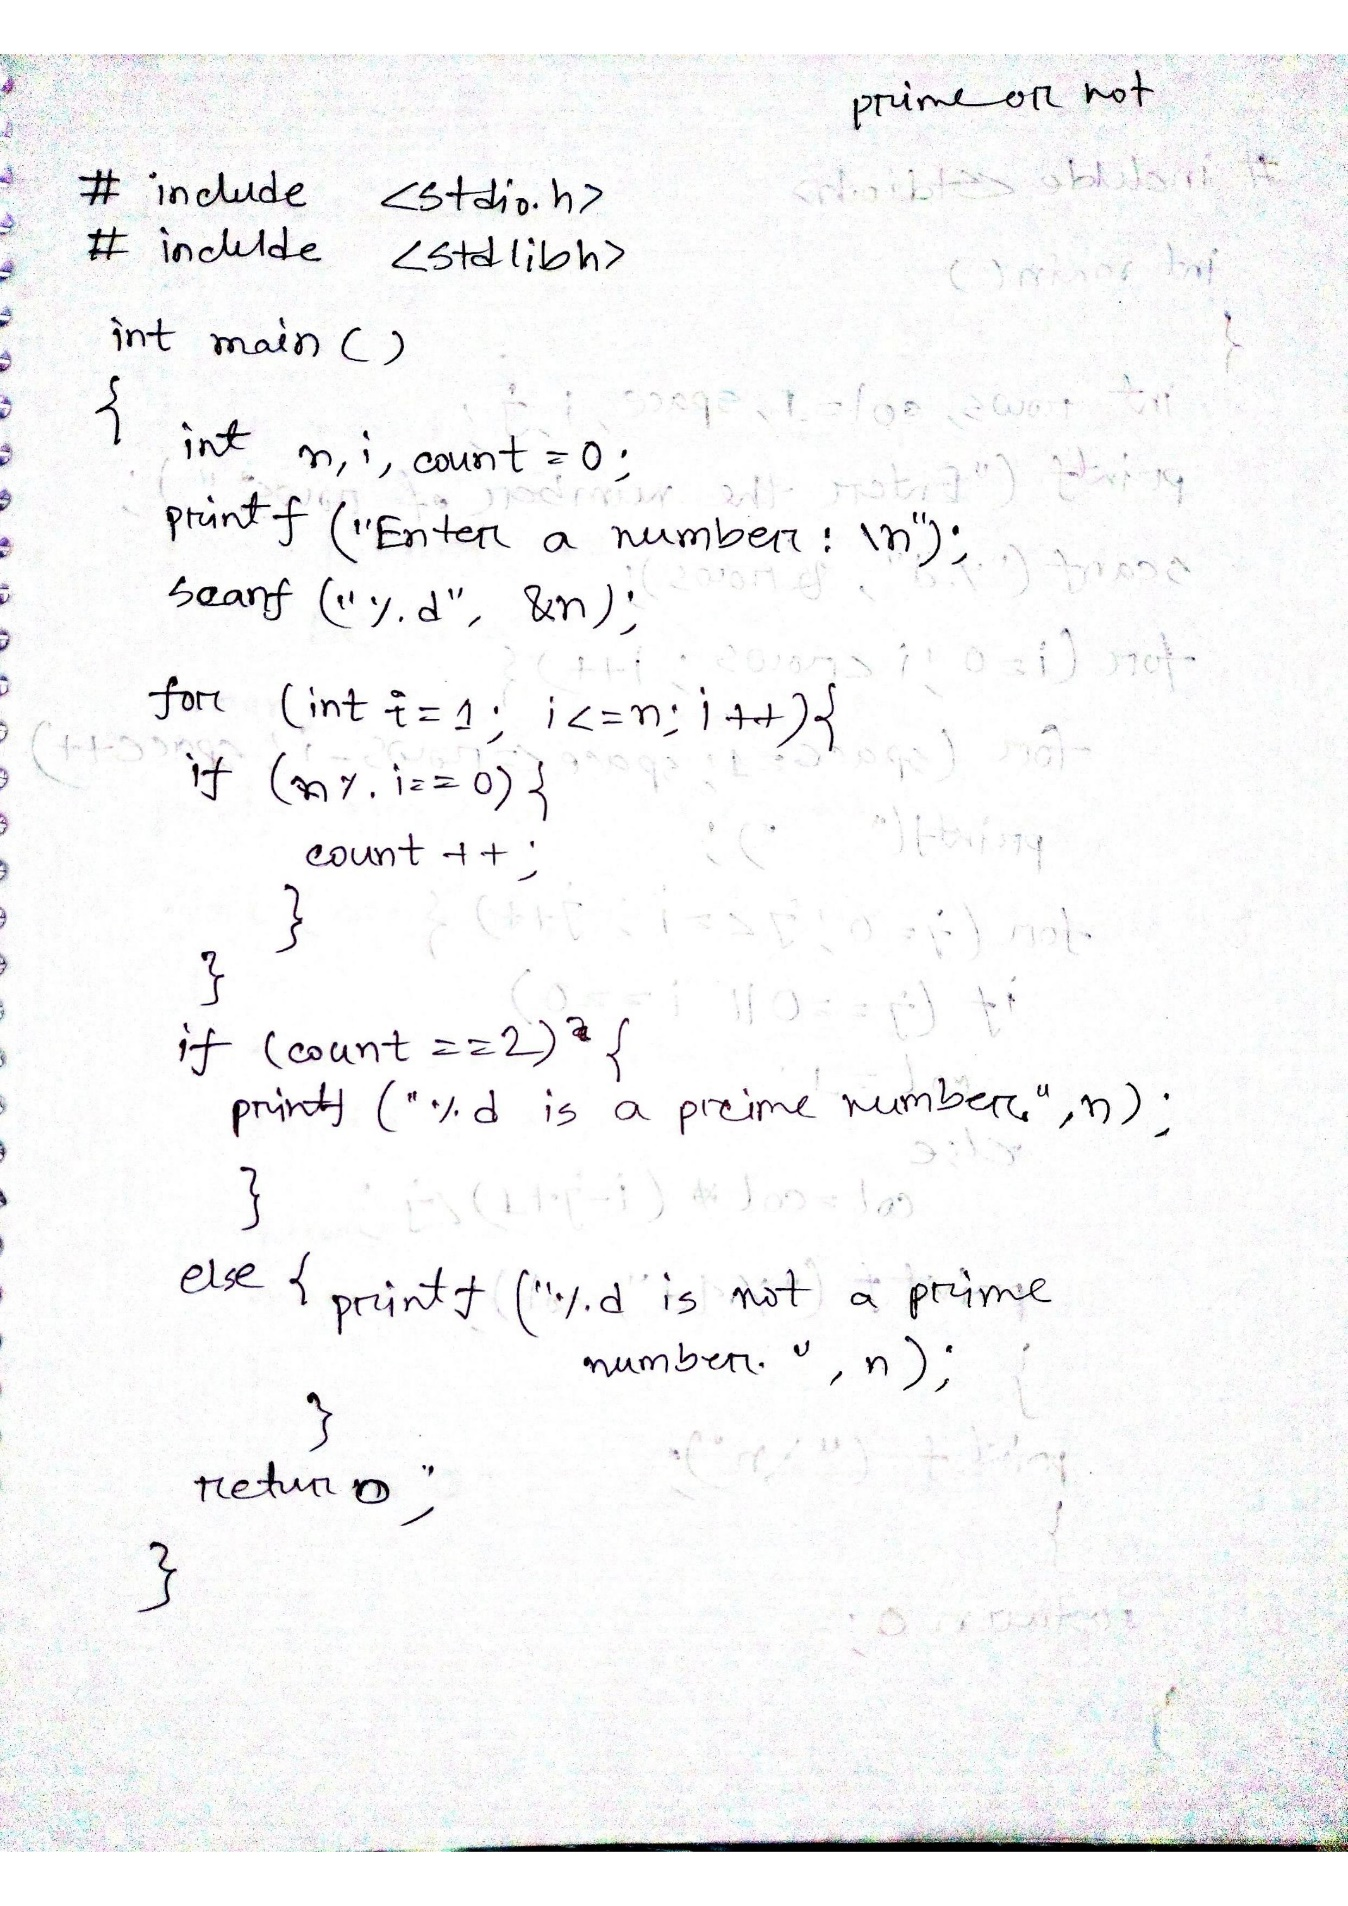 prime or not
# include <stdio.h>
# inclulde <stdlibh>
int main ()
{
int n, i, count = 0;
printf ("Enter a number: \n");
scanf ("%d", &n);
for (int i=1; i<=n; i++){
if (n%i==0){
count ++;
}
}
if (count ==2) {
printf ("%d is a prime number.", n);
}
else { printf ("%d is not a prime
number.", n);
}
return 0;
}